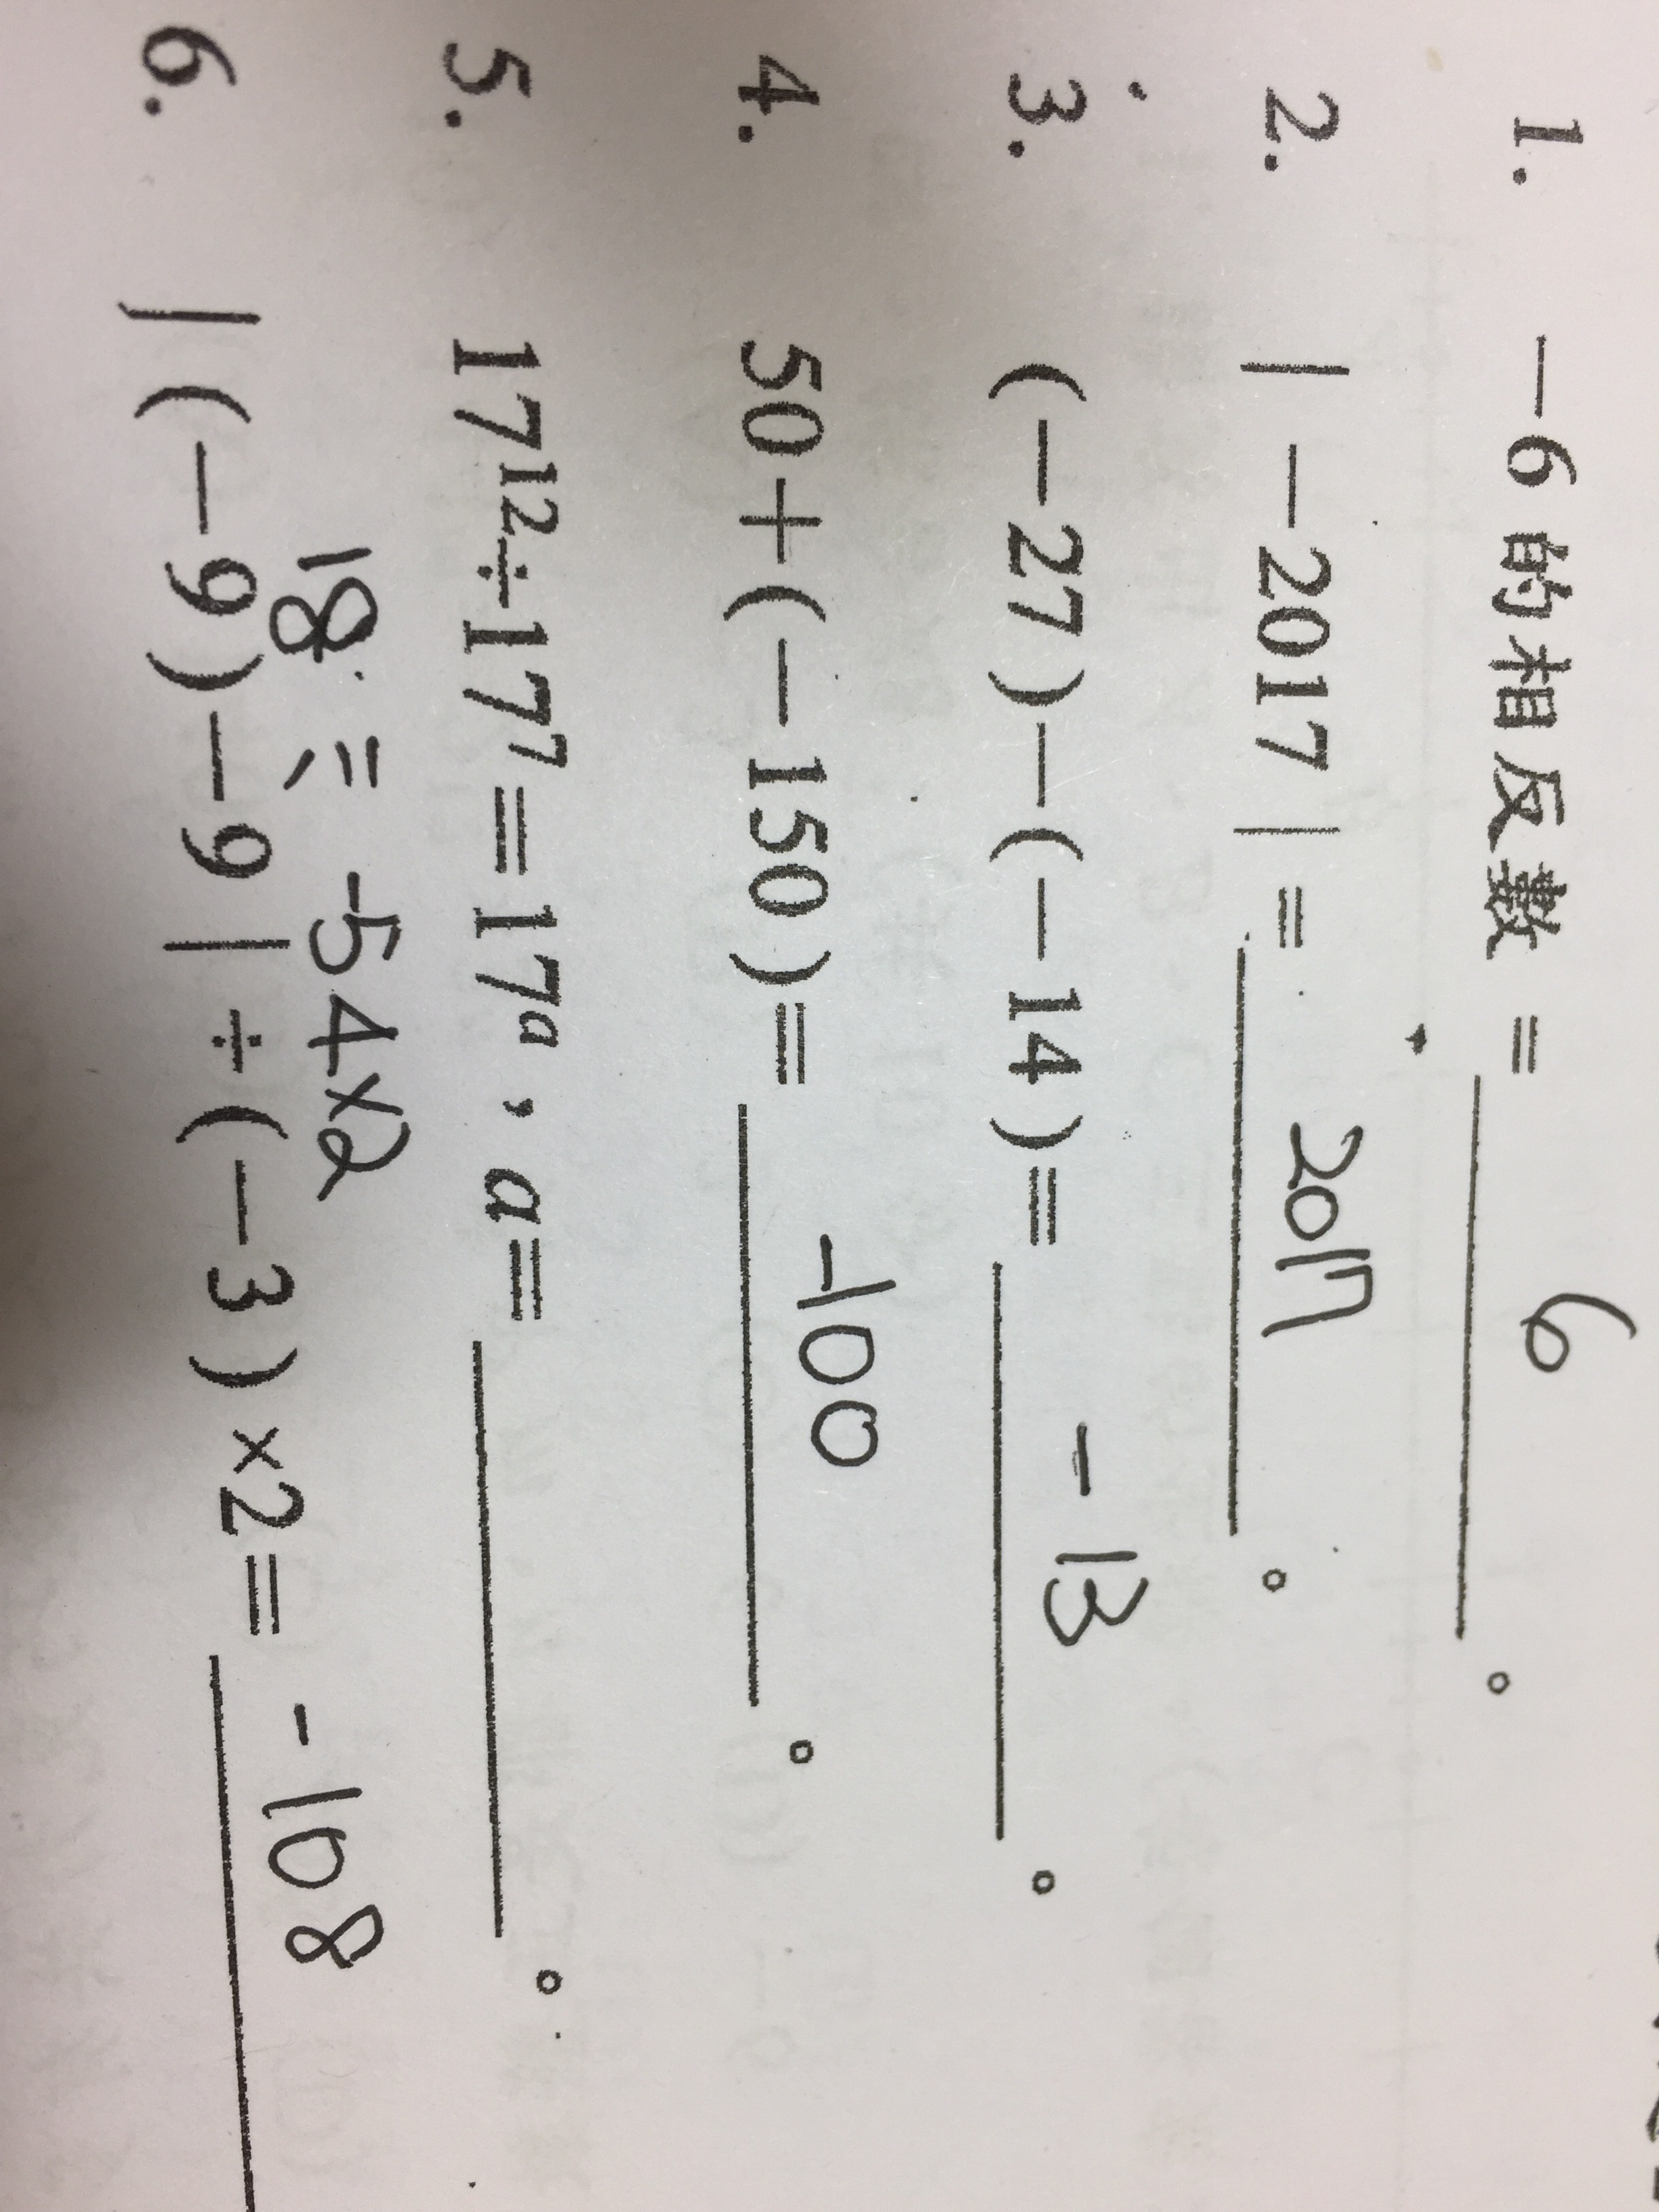 1. －6的相反數 = 6 。
2. | －2017 | = 2017 。
3. (－27)－(－14)= －13 。
4. 50＋(－150)= －100 。
5. 17¹²÷17⁷=17ᵃ，a= 。
18 = -54×2
6. |(－9)－9|÷(－3)×2= －108